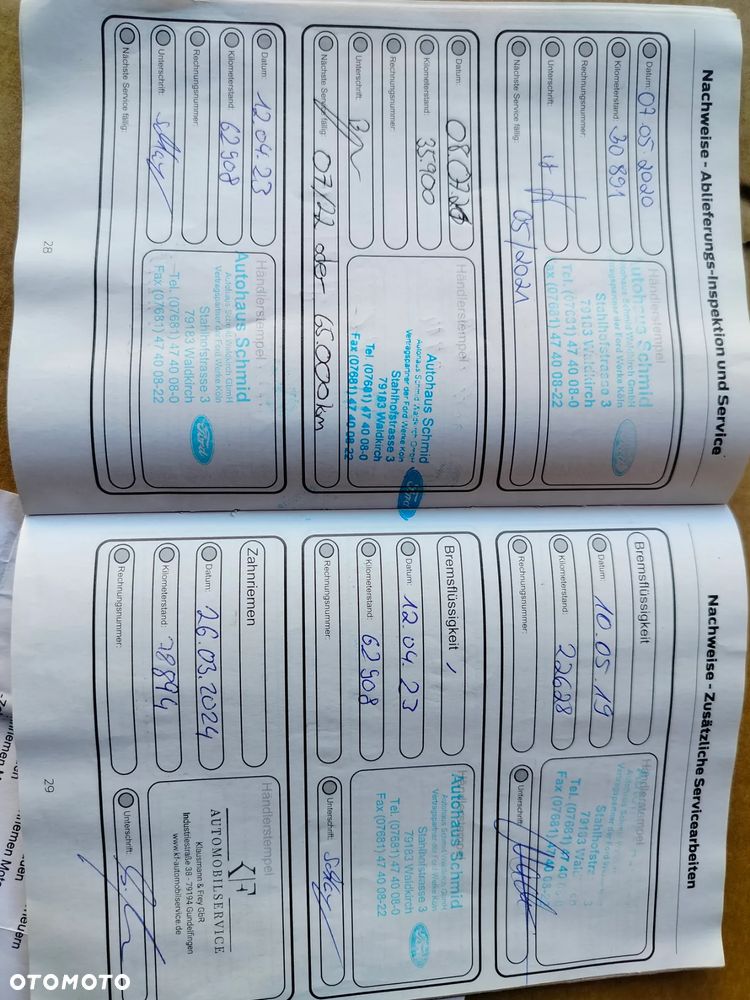 Nachweise - Ablieferungs-Inspektion und Service
Datum: 07.05.2020
Kilometerstand: 30 891
Rechnungsnummer:
Unterschrift:
Nächste Service fällig: 05/2021
Händlerstempel
utohaus Schmid
Vertragspartner der Ford Werke Köln
Stahlhofstrasse 3
79183 Waldkirch
Tel. (07681) 47 40 08-0
ax (07681) 47 40 08-22
Datum: 08.07.20
Kilometerstand: 35.900
Rechnungsnummer:
Unterschrift:
Nächste Service fällig: 07/22 oder 65.000 km
Händlerstempel
Autohaus Schmid
Autohaus Schmid Waldkirch GmbH
Vertragspartner der Ford Werke Köln
Stahlhofstrasse 3
79183 Waldkirch
Tel. (07681) 47 40 08-0
Fax (07681) 47 40 08-22
Ford
Datum: 12.04.23
Kilometerstand: 62908
Rechnungsnummer:
Unterschrift:
Nächste Service fällig:
Händlerstempel
Autohaus Schmid
Autohaus Schmid Waldkirch GmbH
Vertragspartner der Ford Werke Köln
Stahlhofstrasse 3
79183 Waldkirch
Tel. (07681) 47 40 08-0
Fax (07681) 47 40 08-22
Ford
28
Nachweise - Zusätzliche Servicearbeiten
Bremsflüssigkeit
Datum: 10.05.19
Kilometerstand: 22628
Rechnungsnummer:
Händlerstempel
Stahlhofstr 3
79183 Waldkirch
Tel. (07681) 47 40 08-0
Fax (07681) 47 40 08-
Unterschrift:
Bremsflüssigkeit
Datum: 12.04.23
Kilometerstand: 62908
Rechnungsnummer:
Händlerstempel
Autohaus Schmid
Autohaus Schmid Waldkirch GmbH
Vertragspartner der Ford Werke Köln
Stahlhofstrasse 3
79183 Waldkirch
Tel. (07681) 47 40 08-0
Fax (07681) 47 40 08-22
Ford
Unterschrift:
Zahnriemen
Datum: 26.03.2024
Kilometerstand: 78894
Rechnungsnummer:
Händlerstempel
KF
AUTOMOBILSERVICE
Klausmann & Frey GbR
Industriestraße 38 - 79194 Gundelfingen
www.kf-automobilservice.de
Unterschrift:
29
OTOMOTO